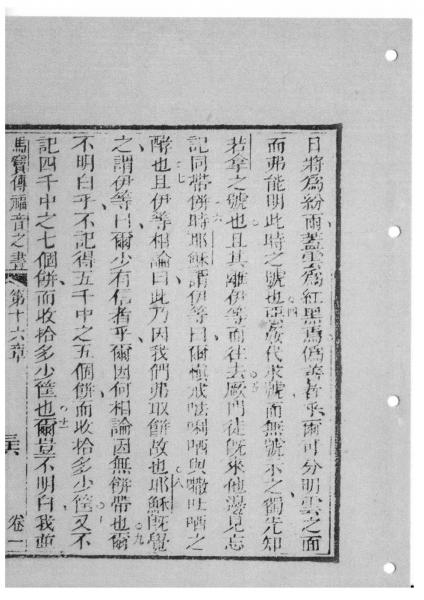 日將爲紛雨蓋雲爲紅黑焉僞善者乎爾可分明雲之面
而弗能明此時之號也 四 惡姦代求號而無號示之獨先知
若拿之號也且其離伊等而往去 五 厥門徒旣來他邊見忘
記同帶餅 六 時耶穌謂伊等曰爾慎戒𠵽唎哂與㘔吐哂之
七 酵也且伊等相論曰此乃因我們弗取餅故也 八 耶穌旣覺
之謂伊等曰爾少有信者乎爾因何相論因無餅帶也 九 爾
不明白乎不記得五千中之五個餅而收拾多少筐 十 又不
記四千中之七個餅而收拾多少筐也 十一 爾豈不明白我
馬竇傳福音之書 第十六章 卷一